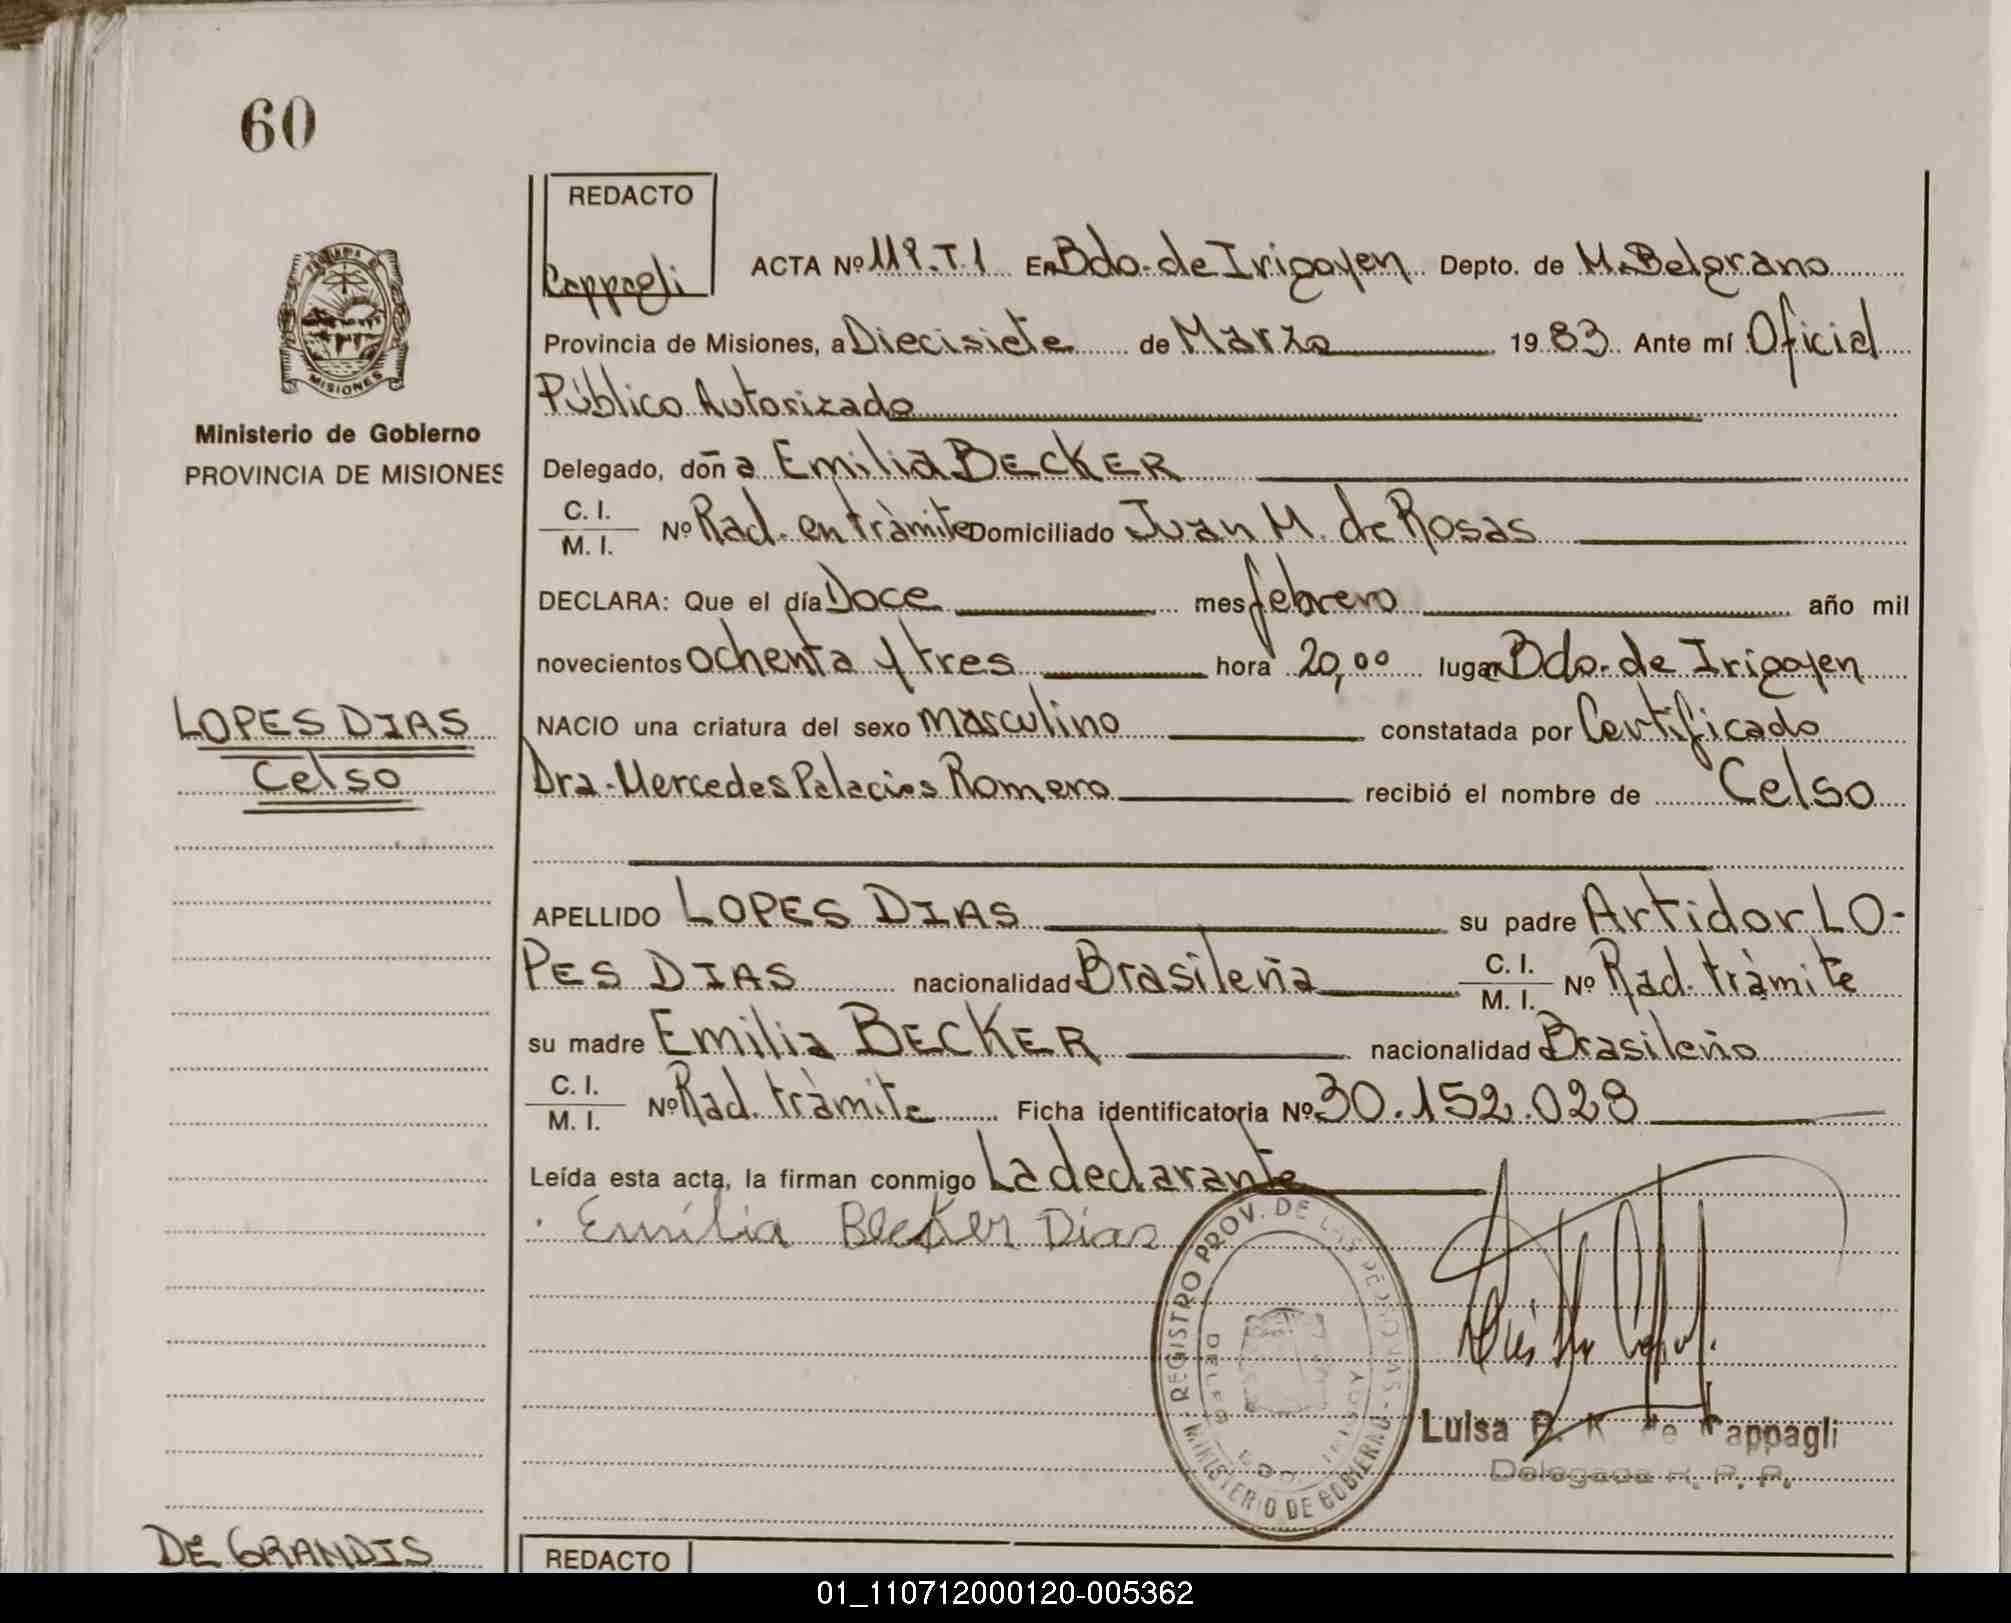 60
REDACTO
Cappagli
MISIONES
Ministerio de Gobierno
PROVINCIA DE MISIONES
ACTA Nº 119.T.1 En Bdo. de Irigoyen Depto. de M. Belgrano
Provincia de Misiones, a Diecisiete de Marzo 19 83 Ante mí Oficial
Público Autorizado
Delegado, doña Emilia BECKER
C. I. / M. I. Nº Rad. en tràmite Domiciliado Juan M. de Rosas
DECLARA: Que el día Doce mes febrero año mil
novecientos ochenta y tres hora 20,00 lugar Bdo. de Irigoyen
LOPES DIAS
Celso
NACIO una criatura del sexo masculino constatada por Certificado
Dra. Mercedes Palacios Romero recibió el nombre de Celso
APELLIDO LOPES DIAS su padre Artidor LO-
PES DIAS nacionalidad Brasileña C. I. / M. I. Nº Rad. tràmite
su madre Emilia BECKER nacionalidad Brasileño
C. I. / M. I. Nº Rad. tràmite Ficha identificatoria Nº 30.152.028
Leída esta acta, la firman conmigo La declarante
Emilia Becker Dias
REGISTRO PROV. DE LAS PERSONAS - MINISTERIO DE GOBIERNO
Luisa de Cappagli
Delegada R. P. P.
DE GRANDIS
REDACTO
01_110712000120-005362